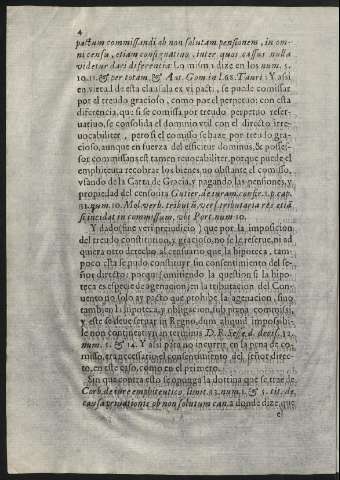 4
pactum commissandi ob non solutam pensionem, in om-
ni censu, etiam consignatiuo, inter quos cassus nulla
videtur dari diferencia: Lo mismo dize en los num. 5.
10. 11. & per totam, & Ant. Gom. in l. 68. Tauri: Y assi
en virtud desta clausula ex vi pacti, se puede comissar
por el treudo gracioso, como por el perpetuo: con esta
diferencia, que si se comissa por treudo perpetuo reser-
uatiuo, se consolida el dominio vtil con el directo irre-
uocabiliter, pero si el comisso se haze por treudo gra-
cioso, aunque en fuerza del efficitur dominus, & posses-
sor commissans est tamen reuocabiliter, porque puede el
emphiteuta recobrar los bienes, no obstante el comisso,
vsando de la Carta de Gracia, y pagando las pensiones, y
propiedad del censo ita Gutier. de iuram. confir. 1. p. cap.
31. num. 10. Mol. verb. tributũ, vers. tributaria res etiã
si incidat in commissum, vbi Port. num. 10.
Y dado (sine veri preiudicio) que por la imposicion
del treudo constitutiuo, y gracioso, no se le reserue, ni ad
quiera otro derecho al censario que la hipoteca, tam-
poco esta se pudo constituyr, sin consentimiento del se-
ñor directo: porque omitiendo la question si la hipo-
teca es especie de agenacion, en la tributacion del Con-
uento no solo ay pacto que prohibe la agenacion, sino
tambien la hipoteca, y obligacion, sub pœna commissi,
y este se deue seruar in Regno, dum aliquid impossibi-
le non contineatur, in terminis D. R. Sesse, d. decis. 12.
num. 5. & 14. Y assi para no incurrir en la pena de co-
misso, era necessario el consentimiento del señor direc-
to, en este caso, como en el primero.
Sin que contra esto se oponga la dotrina que se trae de
Corb. de iure emphiteutico, limit. 23. num. 1. & 5. tit. de
causa priuationis ob non solutum can. a donde dize, que
e